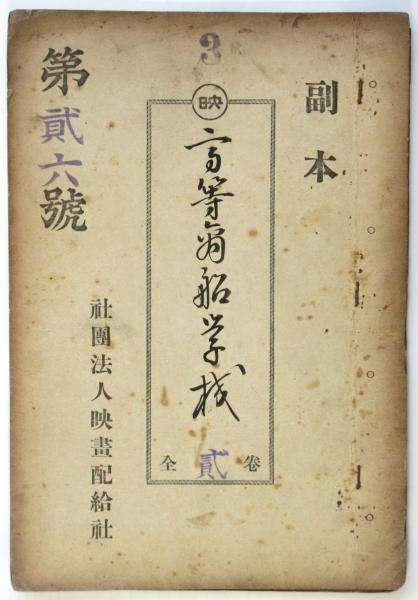 3
副本
映
高等商船学校
全貳卷
第貳六號
社團法人映畫配給社